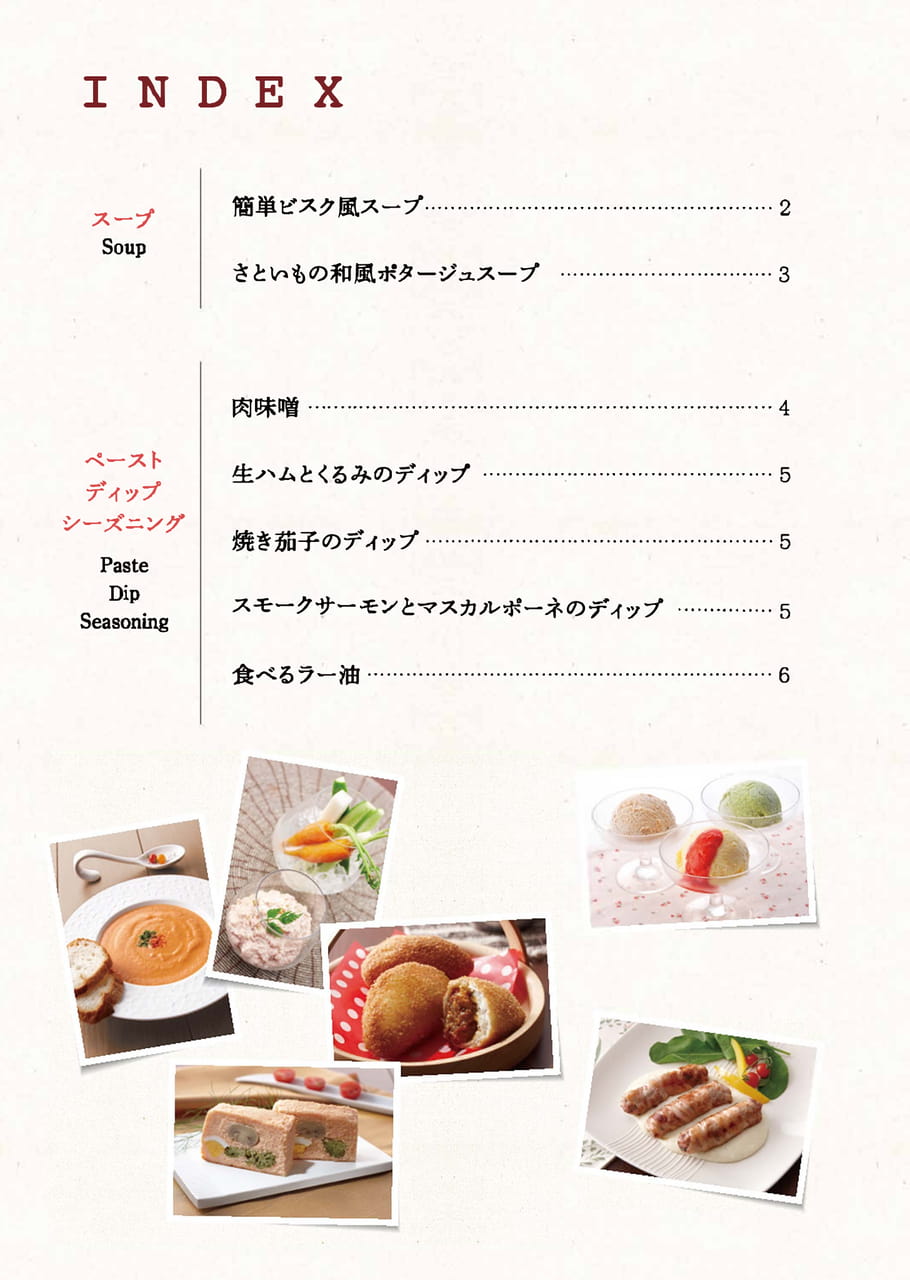 INDEX
スープ
Soup
簡単ビスク風スープ…………………………………… 2
さといもの和風ポタージュスープ …………………… 3
ペースト
ディップ
シーズニング
Paste
Dip
Seasoning
肉味噌 ………………………………………………… 4
生ハムとくるみのディップ …………………………… 5
焼き茄子のディップ …………………………………… 5
スモークサーモンとマスカルポーネのディップ ……… 5
食べるラー油 ………………………………………… 6